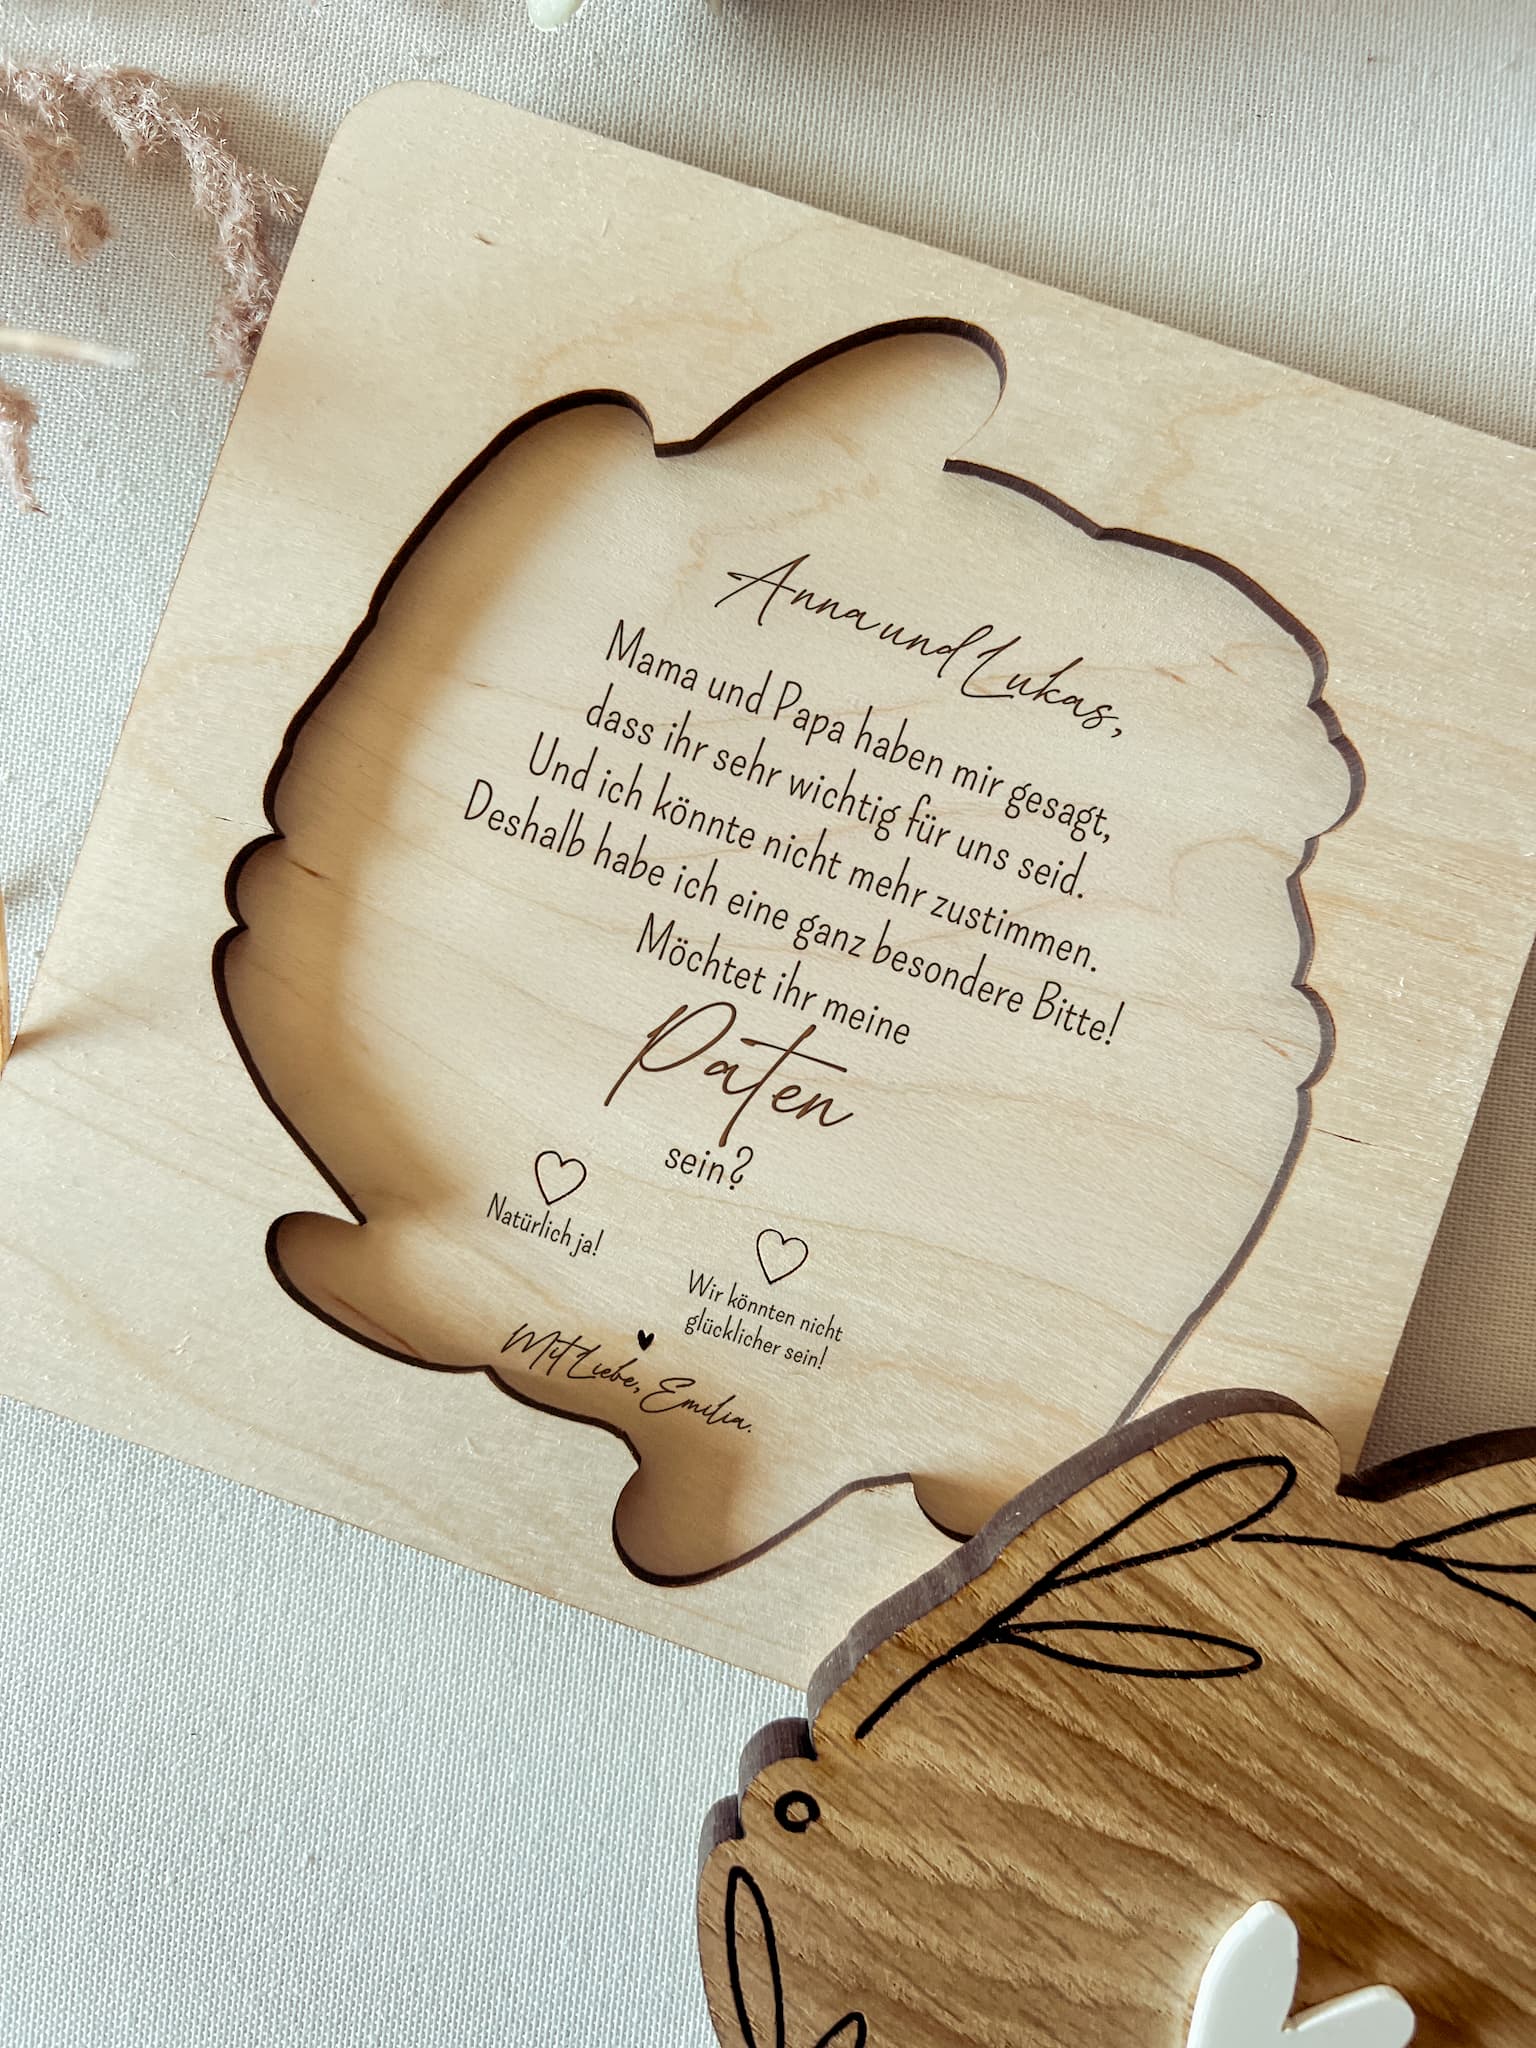 Anna und Lukas,
Mama und Papa haben mir gesagt,
dass ihr sehr wichtig für uns seid.
Und ich könnte nicht mehr zustimmen.
Deshalb habe ich eine ganz besondere Bitte!
Möchtet ihr meine
Paten
sein?
Natürlich ja!
Wir könnten nicht
glücklicher sein!
Mit Liebe, Emilia.